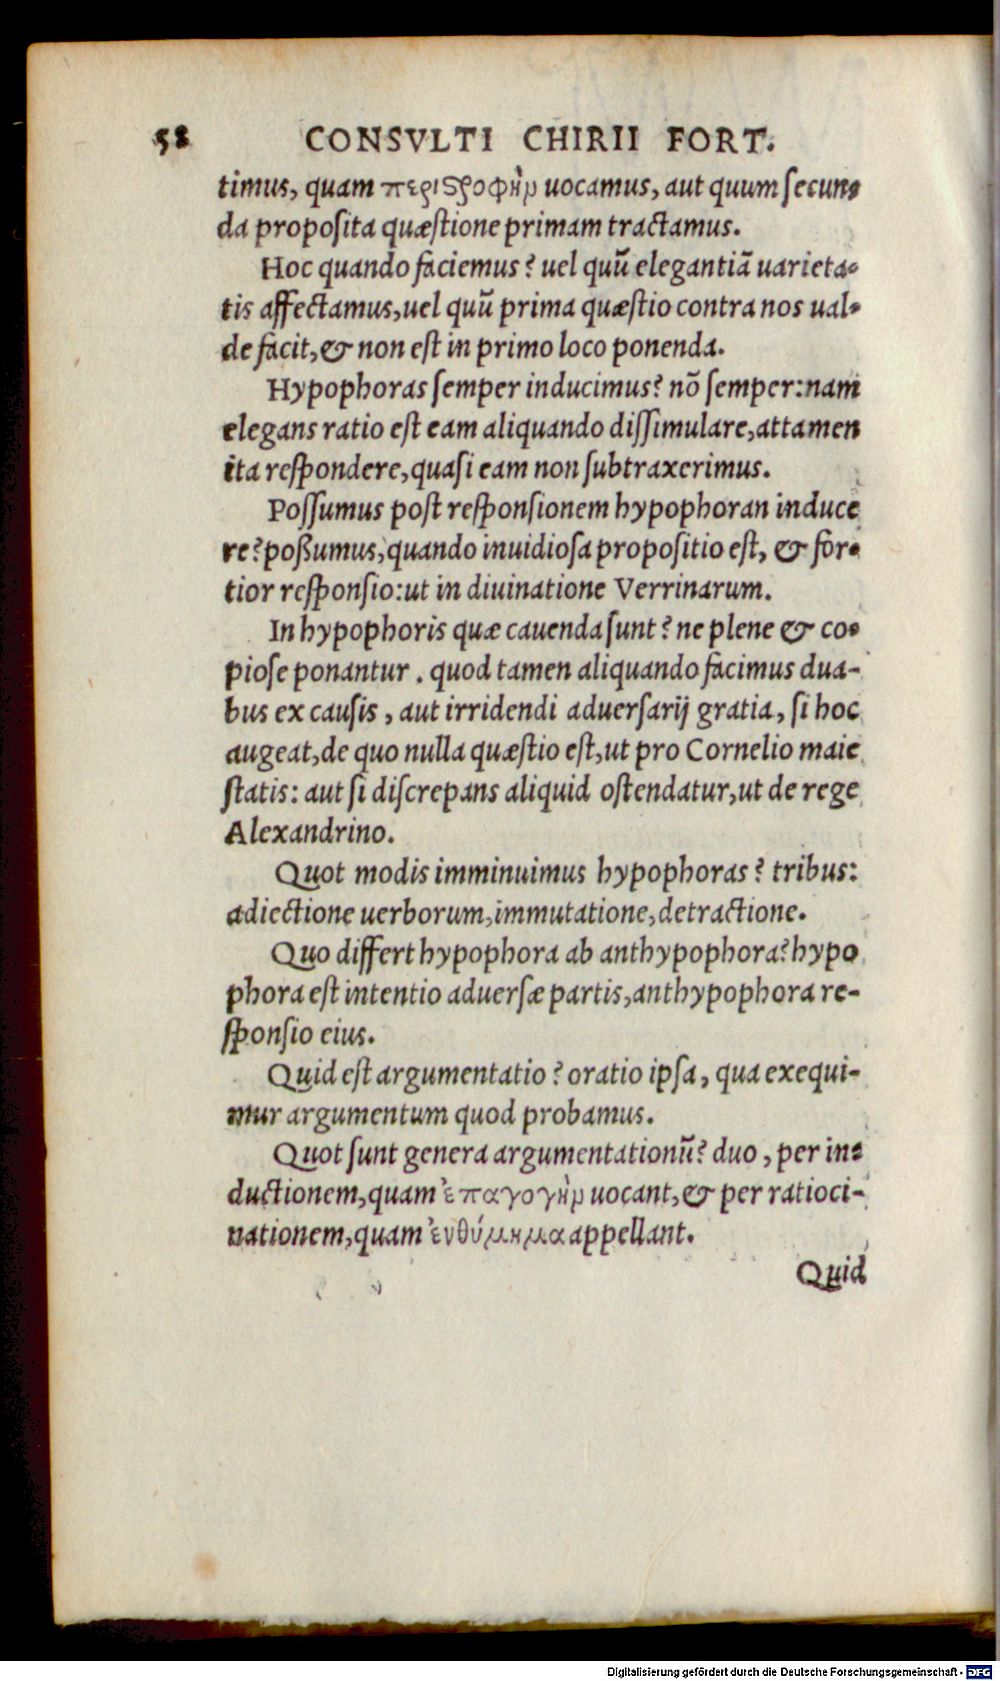 58 CONSVLTI CHIRII FORT.
timus, quam περιστροφὴν uocamus, aut quum secun-
da proposita quæstione primam tractamus.
Hoc quando faciemus? uel quū elegantiā uarieta-
tis affectamus, uel quū prima quæstio contra nos ual-
de facit, & non est in primo loco ponenda.
Hypophoras semper inducimus? nō semper: nam
elegans ratio est eam aliquando dissimulare, attamen
ita respondere, quasi eam non subtraxerimus.
Possumus post responsionem hypophoran induce
re? poßumus, quando inuidiosa propositio est, & for-
tior responsio: ut in diuinatione Verrinarum.
In hypophoris quæ cauenda sunt? ne plene & co-
piose ponantur. quod tamen aliquando facimus dua-
bus ex causis, aut irridendi aduersarij gratia, si hoc
augeat, de quo nulla quæstio est, ut pro Cornelio maie
statis: aut si discrepans aliquid ostendatur, ut de rege
Alexandrino.
Quot modis imminuimus hypophoras? tribus:
adiectione uerborum, immutatione, detractione.
Quo differt hypophora ab anthypophora? hypo
phora est intentio aduersæ partis, anthypophora re-
sponsio eius.
Quid est argumentatio? oratio ipsa, qua exequi-
mur argumentum quod probamus.
Quot sunt genera argumentationū? duo, per in-
ductionem, quam ἐπαγογὴν uocant, & per ratioci-
nationem, quam ἐνθύμημα appellant.
Quid
Digitalisierung gefördert durch die Deutsche Forschungsgemeinschaft - DFG